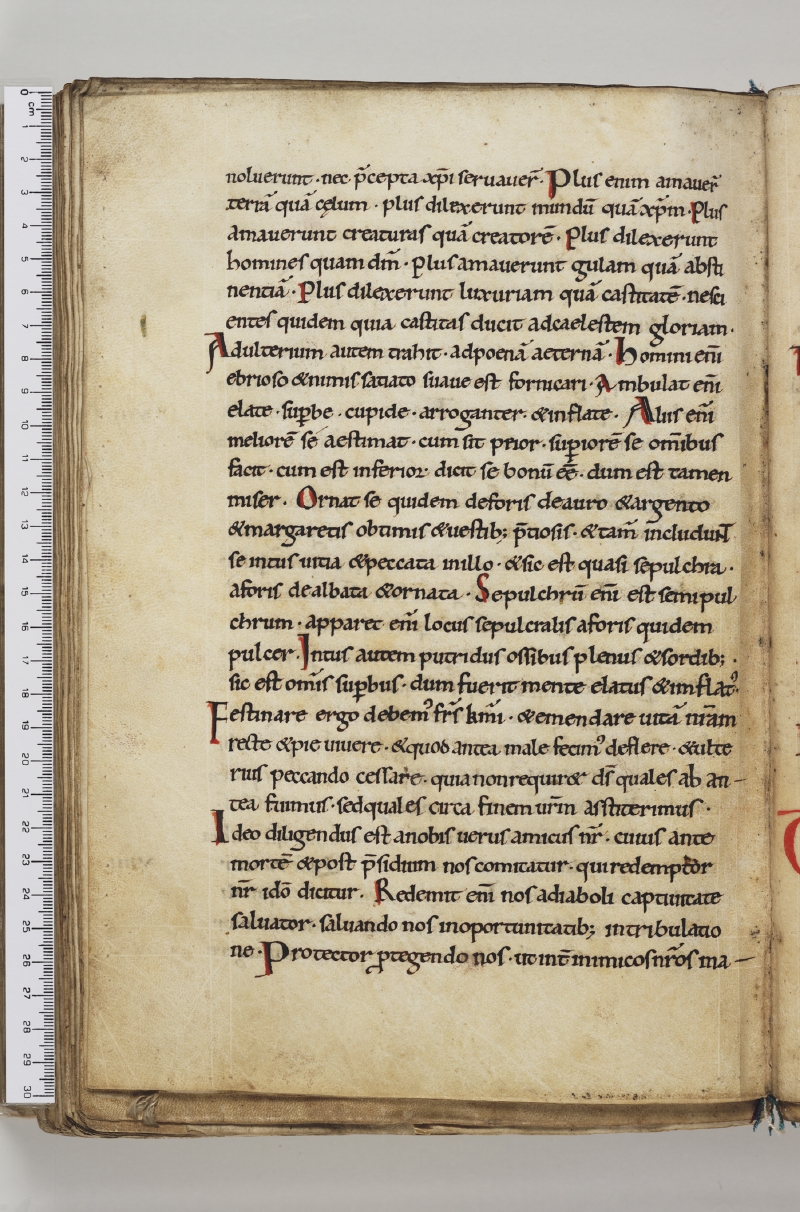 noluerunt · nec p̄cepta xp̄i seruauer̄ · Plus enim amauer̄
terrā quā cęlum · plus dilexerunt mundū quā xp̄m · Plus
amauerunt creaturas quā creatorē · Plus dilexerunt
homines quam dm̄ · Plus amauerunt gulam quā absti
nentiā · Plus dilexerunt luxuriam quā castitatē · nesci
entes quidem quia castitas ducit adcaelestem gloriam ·
Adulterium autem trahit · adpoenā aeternā · Homini enī
ebrioso &nimis satiato suaue est fornicari · Ambulat enī
elate · sup̱be · cupide · arroganter · &inflate · Alius enī
meliorē se aestimat · cum sit peior · sup̱iorē se om̄ibus
facit · cum est inferior · dicit se bonū eē · dum est tamen
miser · Ornat se quidem deforis deauro &argento
&margaretis obtimis &uestib; p̄tiosis · &tam̄ includunt
se intus uitia &peccata inillo · &sic est quasi sepulchra ·
aforis dealbata &ornata · Sepulchrū enī est semipul
chrum · apparet enī locus sepulcralis aforis quidem
pulcer · Intus autem putridus ossibus plenus &sordib; ·
sic est om̄is sup̱bus · dum fuerit mente elatus &inflatꝰ ·
Festinare ergo debemꝰ fr̄s km̄i · &emendare uitā nr̄am
recte &pie uiuere · &quod antea male fecimꝰ deflere · &ulte
rius peccando cessare · quia nonrequir& ds̄ quales ab an-
tea fuimus · sedquales circa finem ur̄m asstiterimus ·
Ideo diligendus est anobis uerus amicus nr̄ · cuius ante
mortē &post p̄sidium noscomitatur · qui redemptor
nr̄ idō dicitur · Redemit enī nos adiaboli captiuitate
saluator · saluando nos inoportunitatib; intribulatio
ne · Protector p̱tegendo nos · ut int̄ inimicos nr̄os ma-